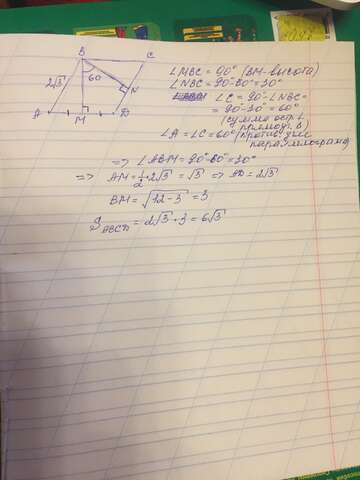 B
C
2√3
60
N
A
M
D
∠MBC = 90° (BM-высота)
∠NBC = 90°-60° = 30°
∠C = 90°-∠NBC =
= 90°-30° = 60°
(сумма остр. ∠
прямоуг. Δ)
∠A = ∠C = 60° (противоп. углы
параллелограмма)
=> ∠ABM = 90°-60° = 30°
=> AM = 1/2 · 2√3 = √3 => AD = 2√3
BM = √12-3 = 3
S ABCD = 2√3 · 3 = 6√3